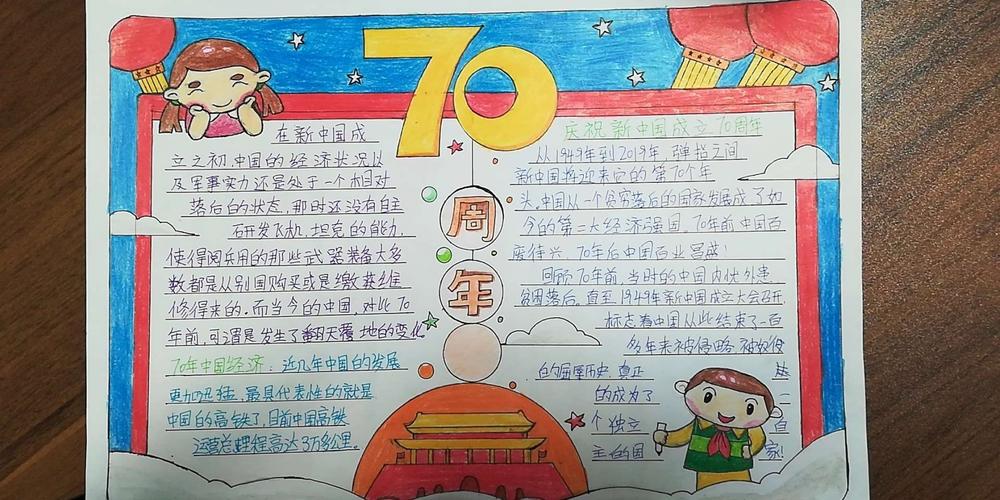 70
周
年
在新中国成
立之初,中国的经济状况以
及军事实力还是处于一个相对
落后的状态,那时还没有自主
研发飞机,坦克的能力.
使得阅兵用的那些武器装备大多
数都是从别国购买或是缴获维
修得来的.而当今的中国,对此70
年前,可谓是发生了翻天覆地的变化
70年中国经济:近几年中国的发展
更加迅猛,最具代表性的就是
中国的高铁了,目前中国高铁
运营总里程高达3万多公里。
庆祝新中国成立70周年
从1949年到2019年,弹指之间
新中国将迎来它的第70个年
头,中国从一个贫穷落后的国家发展成了如
今的第二大经济强国,70年前中国百
废待兴,70年后中国百业昌盛!
回顾70年前,当时的中国内忧外患,
贫困落后.直至1949年新中国成立大会召开,
标志着中国从此结束了一百
多年来被侵略被奴役
的屈辱历史,真正
的成为了一
个独立自
主的国家!